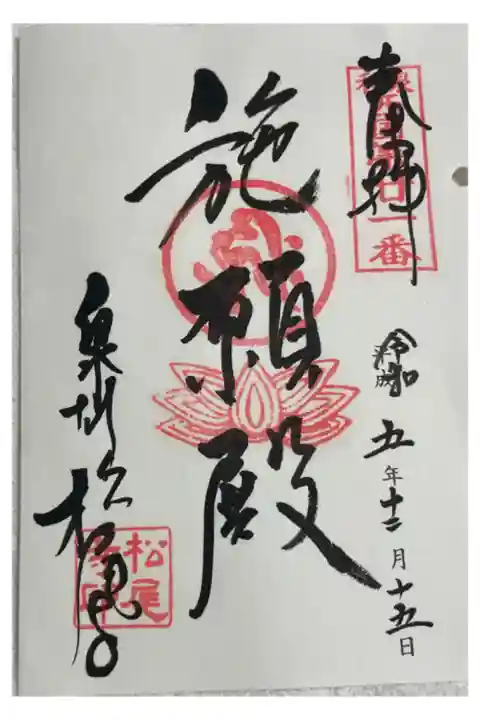 奉拝
一番
令和五年十二月十五日
施願殿
泉州松尾寺
松尾寺印